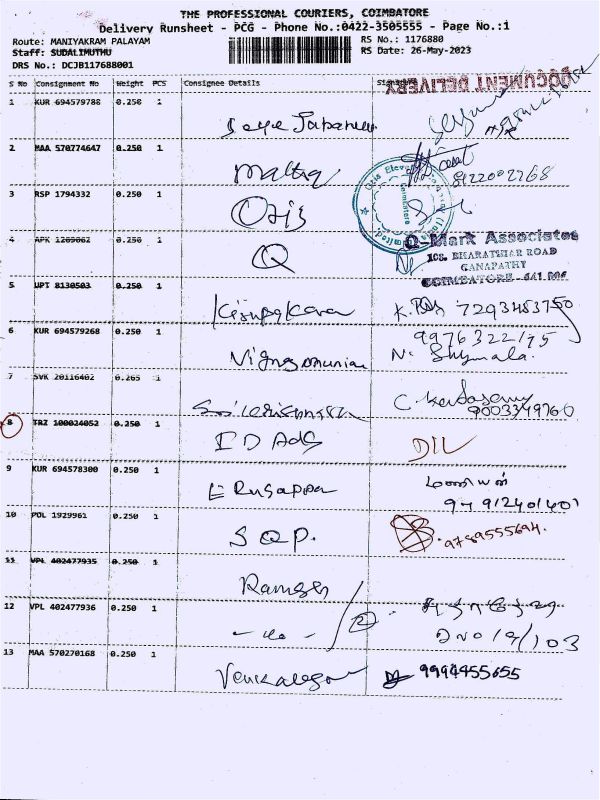 THE PROFESSIONAL COURIERS, COIMBATORE
Delivery Runsheet - PCG - Phone No.:0422-3505555 - Page No.:1
Route: MANIYAKRAM PALAYAM
RS No.: 1176880
Staff: SUDALIMUTHU
RS Date: 26-May-2023
DRS No.: DCJB117688001
S No Consignment No Weight PCS Consignee Details
DOCUMENT DELIVERY
1 KUR 694579788 0.250 1
2 MAA 570774647 0.250 1
Maltra
8122002768
3 RSP 1794332 0.250 1
Otis
Otis Elevator
Coimbatore
4 APK 1269062 0.250 1
Q
Q-Mark Associates
108, BHARATHIAR ROAD
GANAPATHY
COIMBATORE - 641 006
5 UPT 8130503 0.250 1
7293483750
6 KUR 694579268 0.250 1
9976322175
N. Shymala.
7 SVK 20116402 0.265 1
9003349760
8 TRZ 100024052 0.250 1
I D Ads
DIL
9 KUR 694578300 0.250 1
10 POL 1929961 0.250 1
S Q P.
9789555694.
11 VPL 402477935 0.250 1
Ramesh
12 VPL 402477936 0.250 1
13 MAA 570270168 0.250 1
9994455655